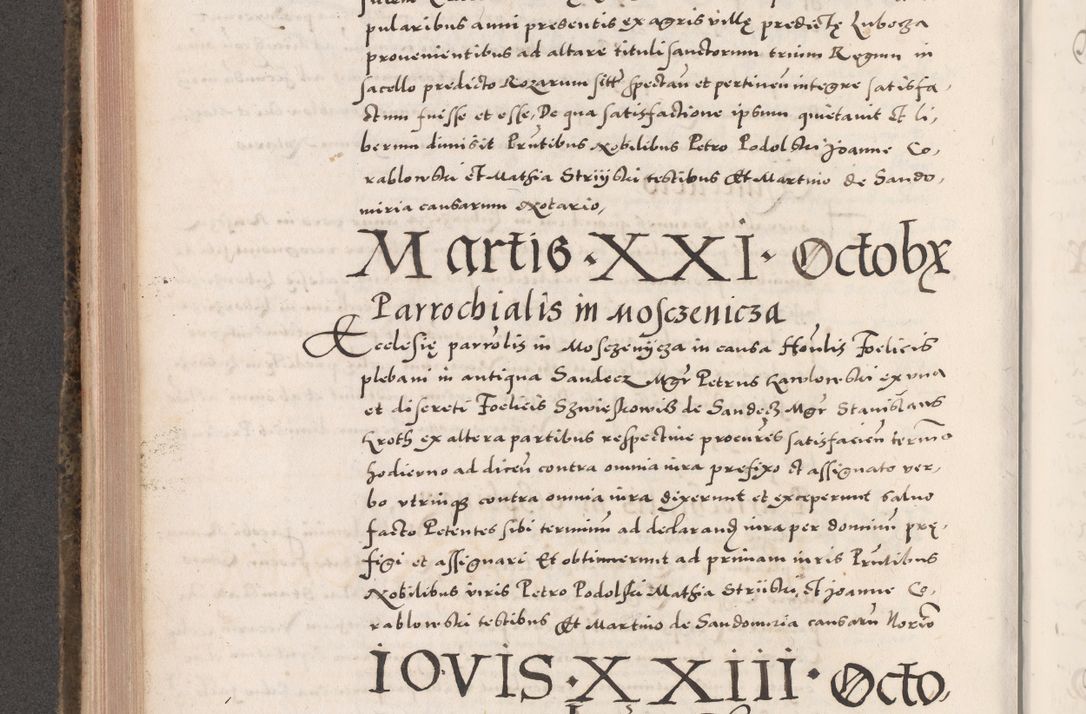 pularibus anni presentis ex agris villę predictę Lubocza
provenientibus ad altare tituli sanctorum trium Regum in
sacello predicto Rozarum sitt̃ spectañ et pertineñ integre satisfa,
ctum fuisse et esse, De qua satisfactione ipsum quietavit et li,
berum dimisit Prñtibus Nobilibus Petro Podolski Joanne Co,
rablowski et Mathia Strijski testibus Et Martino de Sando,
miria causarum Notario,
Martis · XXI · Octobr
Parrochialis in Mosczenicza
Ecclesię parrolis in Mosczenijcza in causa Honlis Foelicis
plebani in antiqua Sandecz Mgr Petrus Kawlowski ex una
et discreti Foelicis Szwieskowicz de Sandecz Mgr Stanislaus
Kroth ex altera partibus respective procures satisfacieñ termino
hodierno ad diceñ contra omnia iura prefixo et assignato ver,
bo utrinque contra omnia iura dixerunt et exceperunt salvo
facto Petentes sibi terminum ad declarand iura per dominum prę,
figi et assignari Et obtinuerunt ad primam iuris Prñtibus
Nobilibus viris Petro Podolski Mathia Strijski, et Joanne Co,
rablowski testibus Et Martino de Sandomiria causaru Norio
IOVIS · XXIII · Octo,